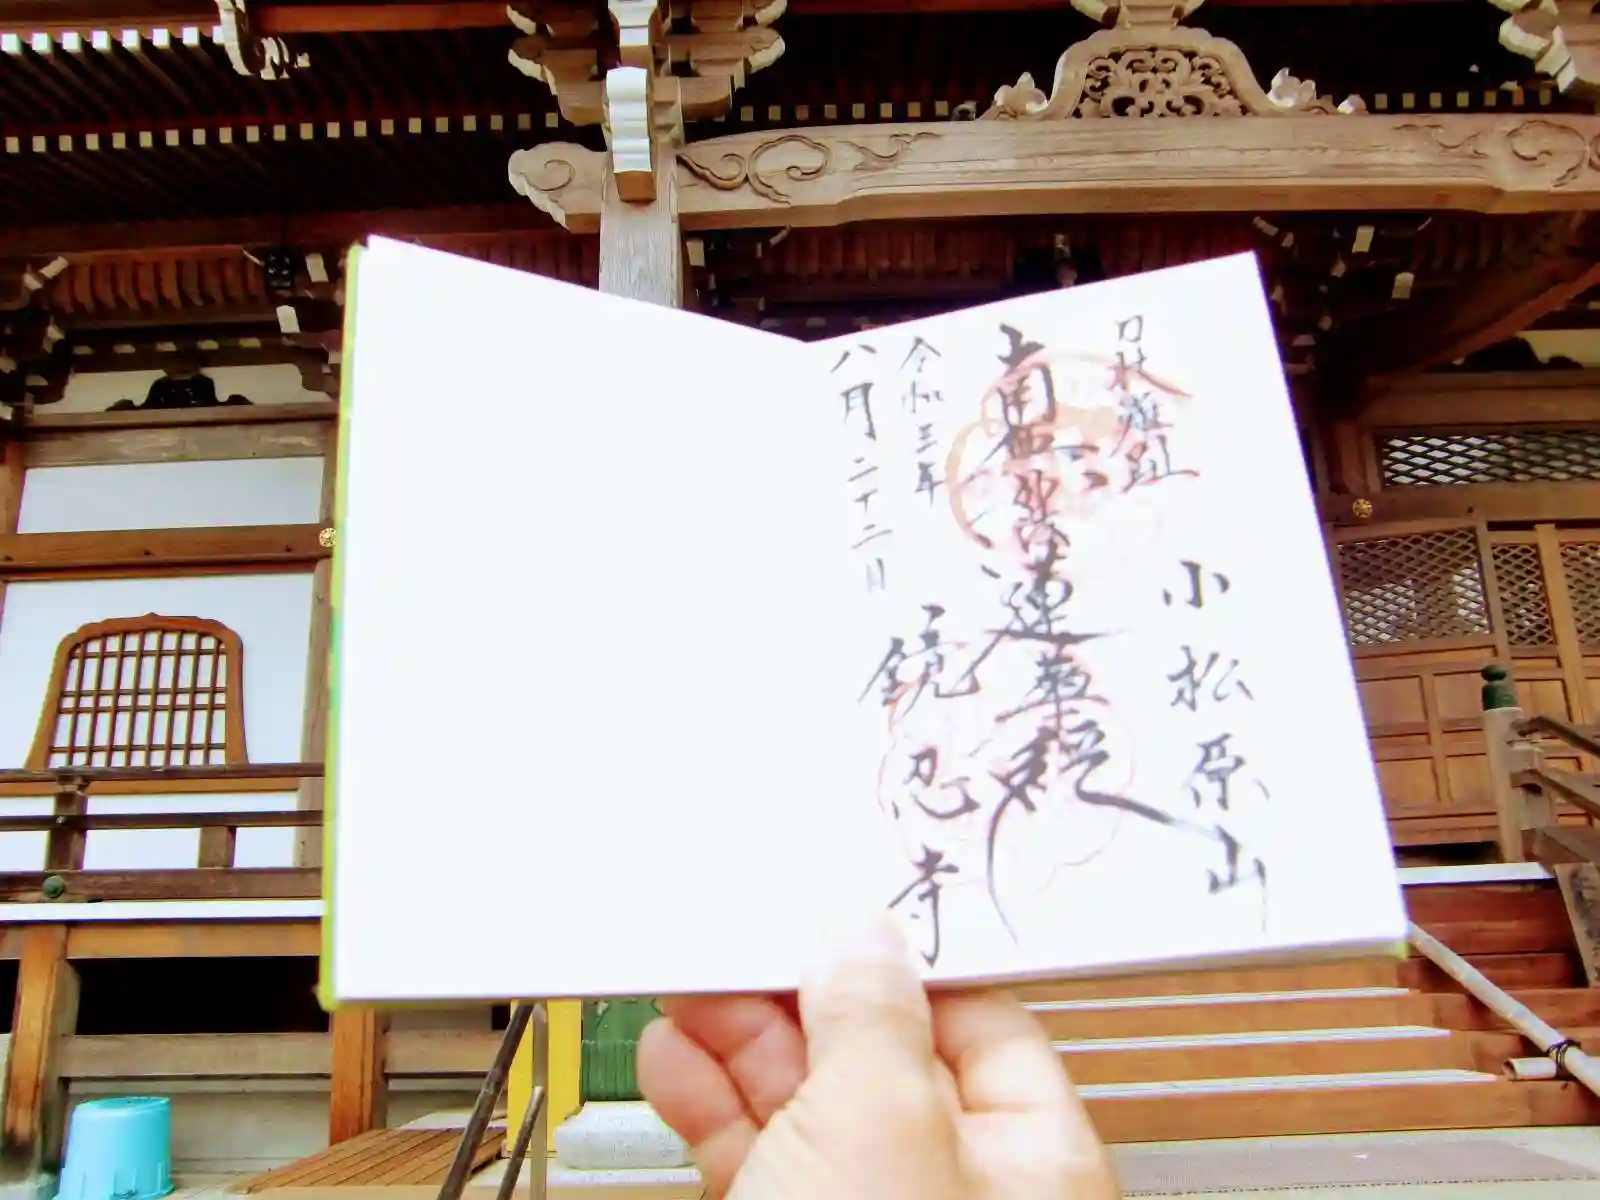 刀杖難趾
小松原山
南無妙法蓮華経
令和三年
八月二十二日
鏡忍寺